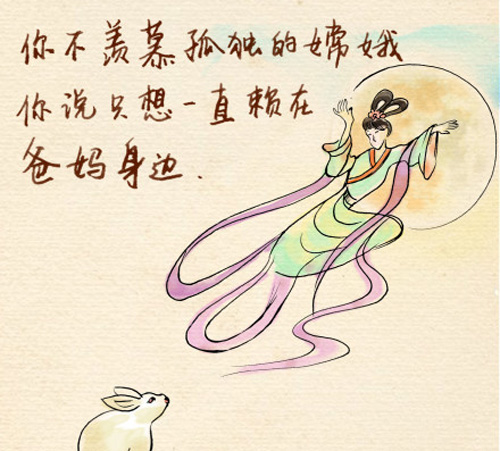 你不羡慕孤独的嫦娥
你说只想一直赖在
爸妈身边.